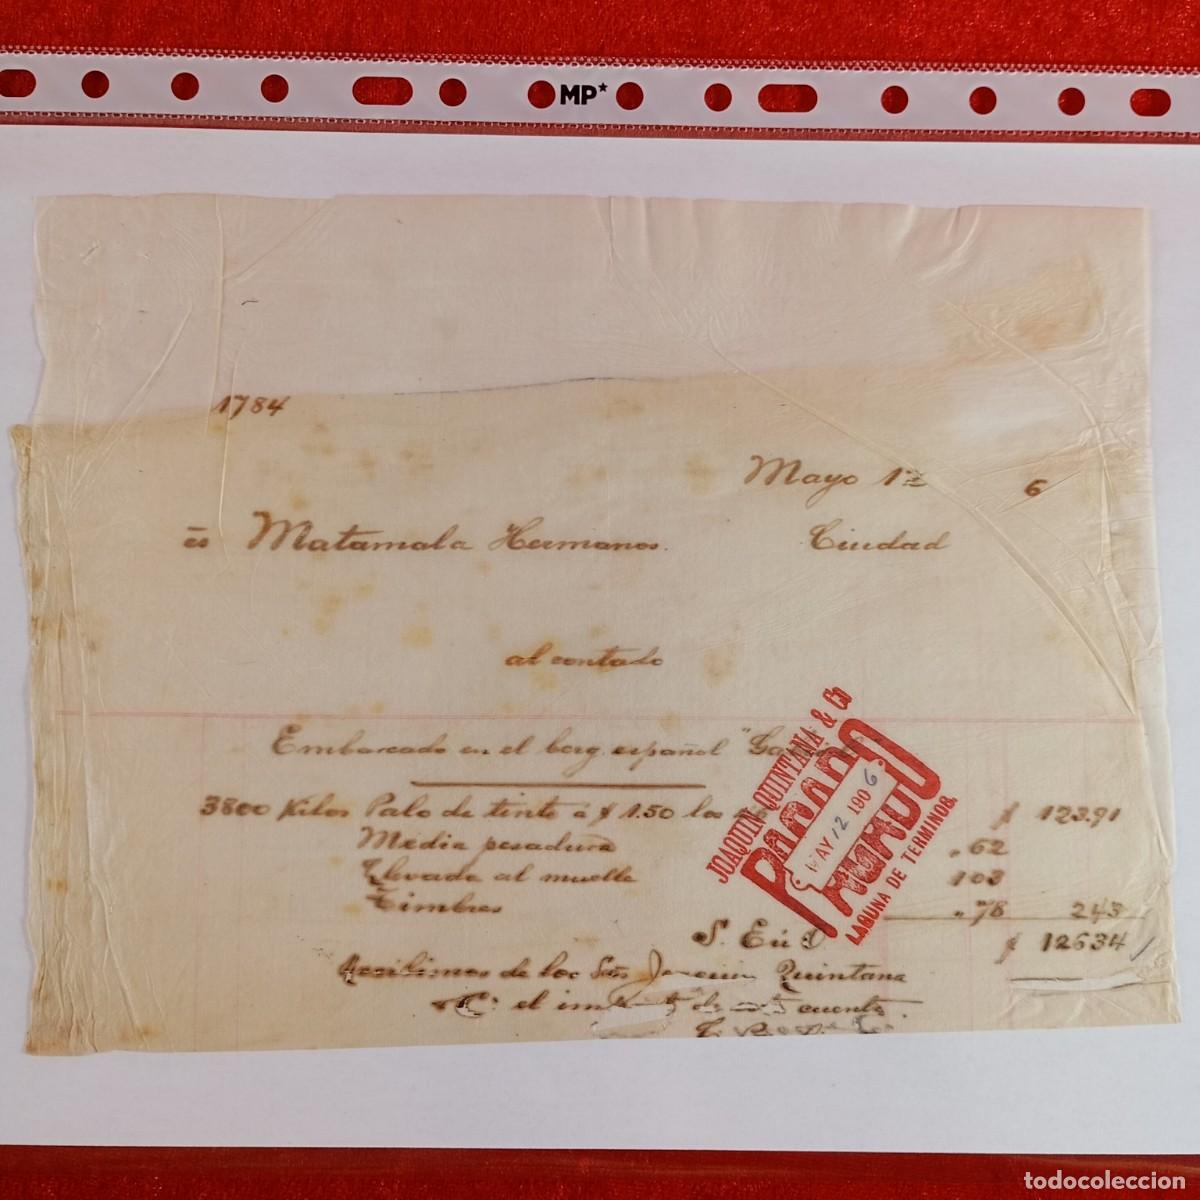 MP*
1784
Mayo 12 6
Matamala Hermanos. Ciudad
al contado
Embarcado en el berg. español
3800 Kilos Palo de tinte á $ 1.50 los $ 123.91
Media pesadura " 62
Llevada al muelle 1 03
Timbres " 78 2 43
S. E ú O $ 126 34
Recibimos de los Sres Joaquin Quintana
y Ca: el importe de cuenta.
JOAQUIN QUINTANA & Co
MAY 12 1906
LAGUNA DE TERMINOS.
todocoleccion